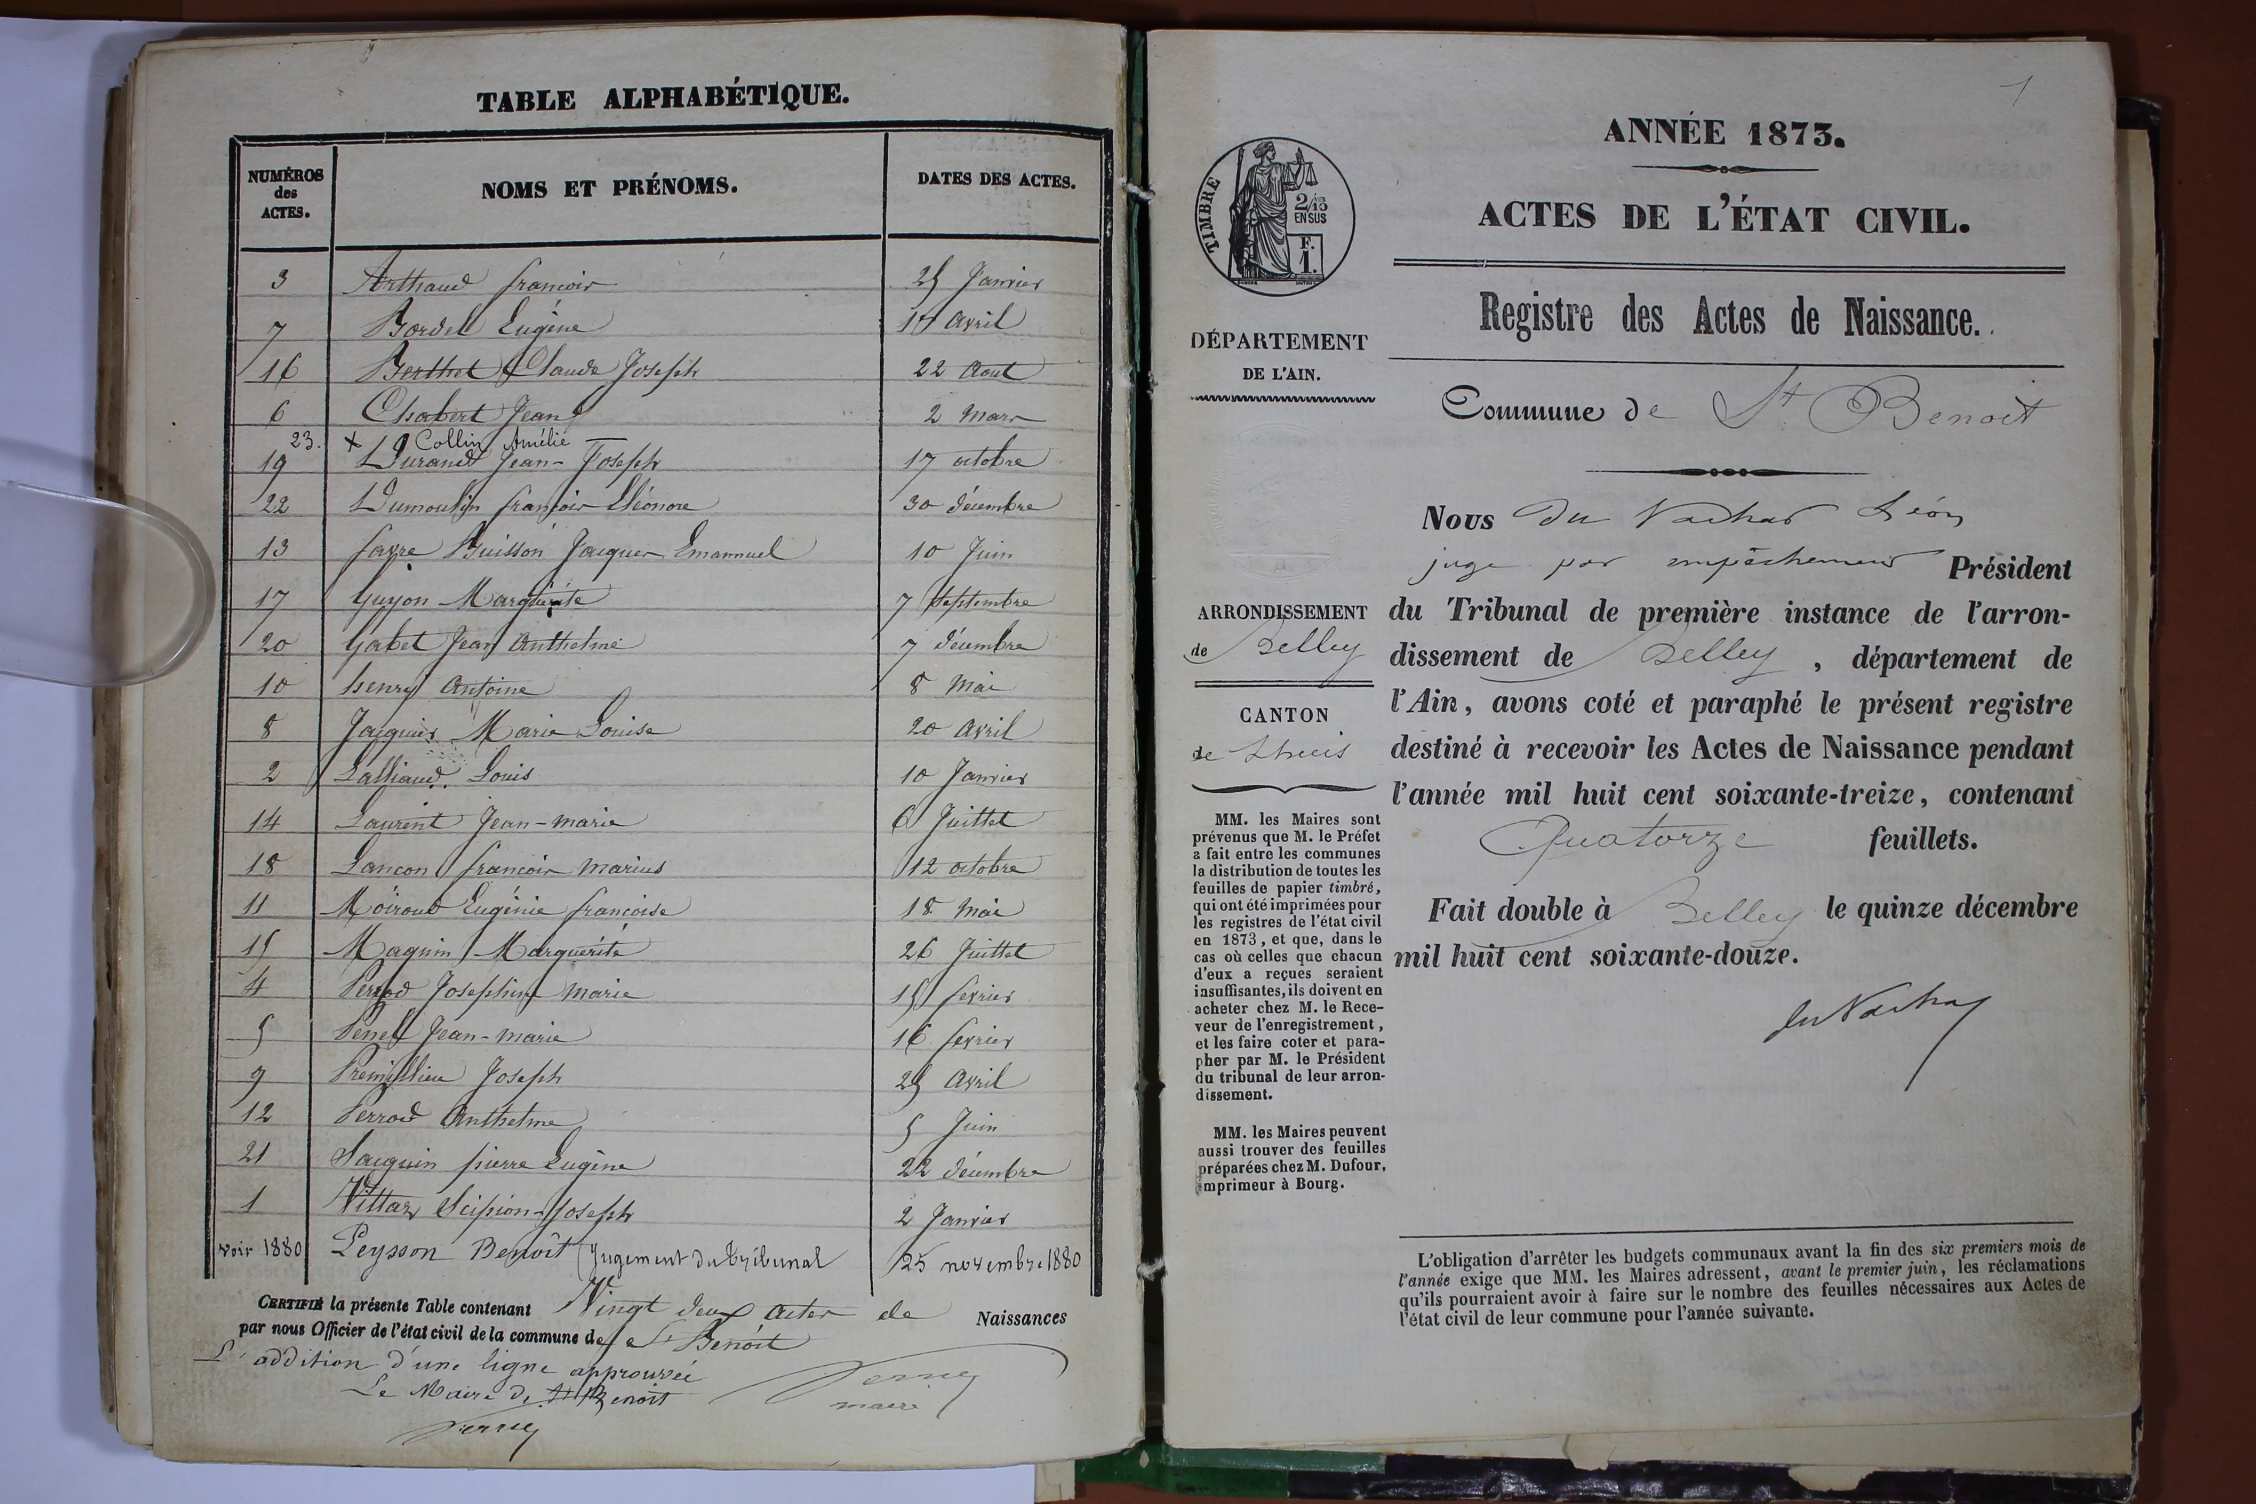 TABLE ALPHABÉTIQUE.
NUMÉROS des ACTES. NOMS ET PRÉNOMS. DATES DES ACTES.
3 Arthaud françois 25 Janvier
7 Bordel Eugène Avril
16 Berthet Claude Joseph 22 Aout
6 Chabert Jean 2 Mars
23. + Collin Amélie
19 Durand Jean-Joseph 17 octobre
22 Dumoulin françois Eléonore 30 décembre
13 favre Buisson Jacques Emannuel 10 Juin
17 Guyon Marguerite 7 Septembre
20 Gabet Jean Anthelme 7 décembre
10 henry Antoine 8 Mai
8 Marie Louise 20 Avril
2 Lalliaud Louis 10 Janvier
14 Laurent Jean-marie 6 Juillet
18 Lancon françois marius 12 octobre
11 Moiroud Eugénie françoise 18 Mai
15 Maquin Marguerite 26 Juillet
4 Perrod Josephine marie 15 fevrier
5 Jean-marie 16 fevrier
9 Premillieu Joseph 25 Avril
12 Perrod Anthelme 5 Juin
21 pierre Eugène 22 décembre
1 Vittoz Scipion-Joseph 2 Janvier
voir 1880 Peysson Benoît (Jugement du tribunal 25 novembre 1880
CERTIFIÉ la présente Table contenant Vingt deux actes de Naissances
par nous Officier de l'état civil de la commune de St Benoit
L'addition d'une ligne approuvée
Le Maire de St Benoit
maire
1
ANNÉE 1873.
ACTES DE L'ÉTAT CIVIL.
TIMBRE
2/13
EN SUS
F.
1.
Registre des Actes de Naissance.
DÉPARTEMENT
DE L'AIN.
Commune de St Benoit
Nous du Nachat Léon
juge par empêchement Président
du Tribunal de première instance de l'arron-
dissement de Belley, département de
l'Ain, avons coté et paraphé le présent registre
destiné à recevoir les Actes de Naissance pendant
l'année mil huit cent soixante-treize, contenant
Quatorze feuillets.
Fait double à Belley le quinze décembre
mil huit cent soixante-douze.
du Nachat
ARRONDISSEMENT
de Belley
CANTON
de Lhuis
MM. les Maires sont
prévenus que M. le Préfet
a fait entre les communes
la distribution de toutes les
feuilles de papier timbré,
qui ont été imprimées pour
les registres de l'état civil
en 1873, et que, dans le
cas où celles que chacun
d'eux a reçues seraient
insuffisantes, ils doivent en
acheter chez M. le Rece-
veur de l'enregistrement,
et les faire coter et para-
pher par M. le Président
du tribunal de leur arron-
dissement.
MM. les Maires peuvent
aussi trouver des feuilles
préparées chez M. Dufour,
imprimeur à Bourg.
L'obligation d'arrêter les budgets communaux avant la fin des six premiers mois de
l'année exige que MM. les Maires adressent, avant le premier juin, les réclamations
qu'ils pourraient avoir à faire sur le nombre des feuilles nécessaires aux Actes de
l'état civil de leur commune pour l'année suivante.